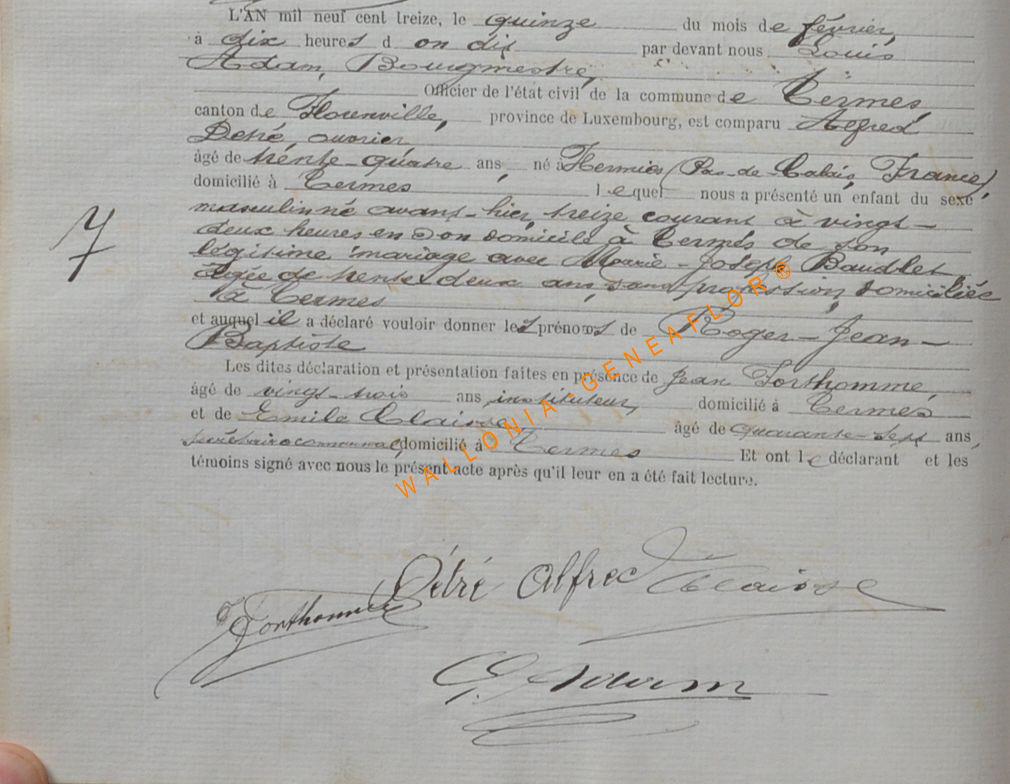 L'AN mil neuf cent treize, le quinze du mois de février,
à dix heures d on dix par devant nous Louis
Adam, Bourgmestre,
Officier de l'état civil de la commune de Termes,
canton de Florenville, province de Luxembourg, est comparu Alfred
Détré, ouvrier
âgé de trente-quatre ans, né à Hermies (Pas-de-Calais, France)
domicilié à Termes lequel nous a présenté un enfant du sexe
masculin né avant-hier, treize courant à vingt-
deux heures en son domicile à Termes de son
légitime mariage avec Marie-Joseph Baudlet
agée de trente-deux ans, sans profession, domiciliée
à Termes
et auquel il a déclaré vouloir donner les prénoms de Roger-Jean-
Baptiste
Les dites déclaration et présentation faites en présence de Jean Forthomme,
âgé de vingt-trois ans, instituteur, domicilié à Termes
et de Emile Claisse, âgé de quarante-sept ans,
secrétaire communal, domicilié à Termes Et ont le déclarant et les
témoins signé avec nous le présent acte après qu'il leur en a été fait lecture.
7
WALLONIA-GENEAFLOR®
Détré Alfred Claisse
J Forthomme